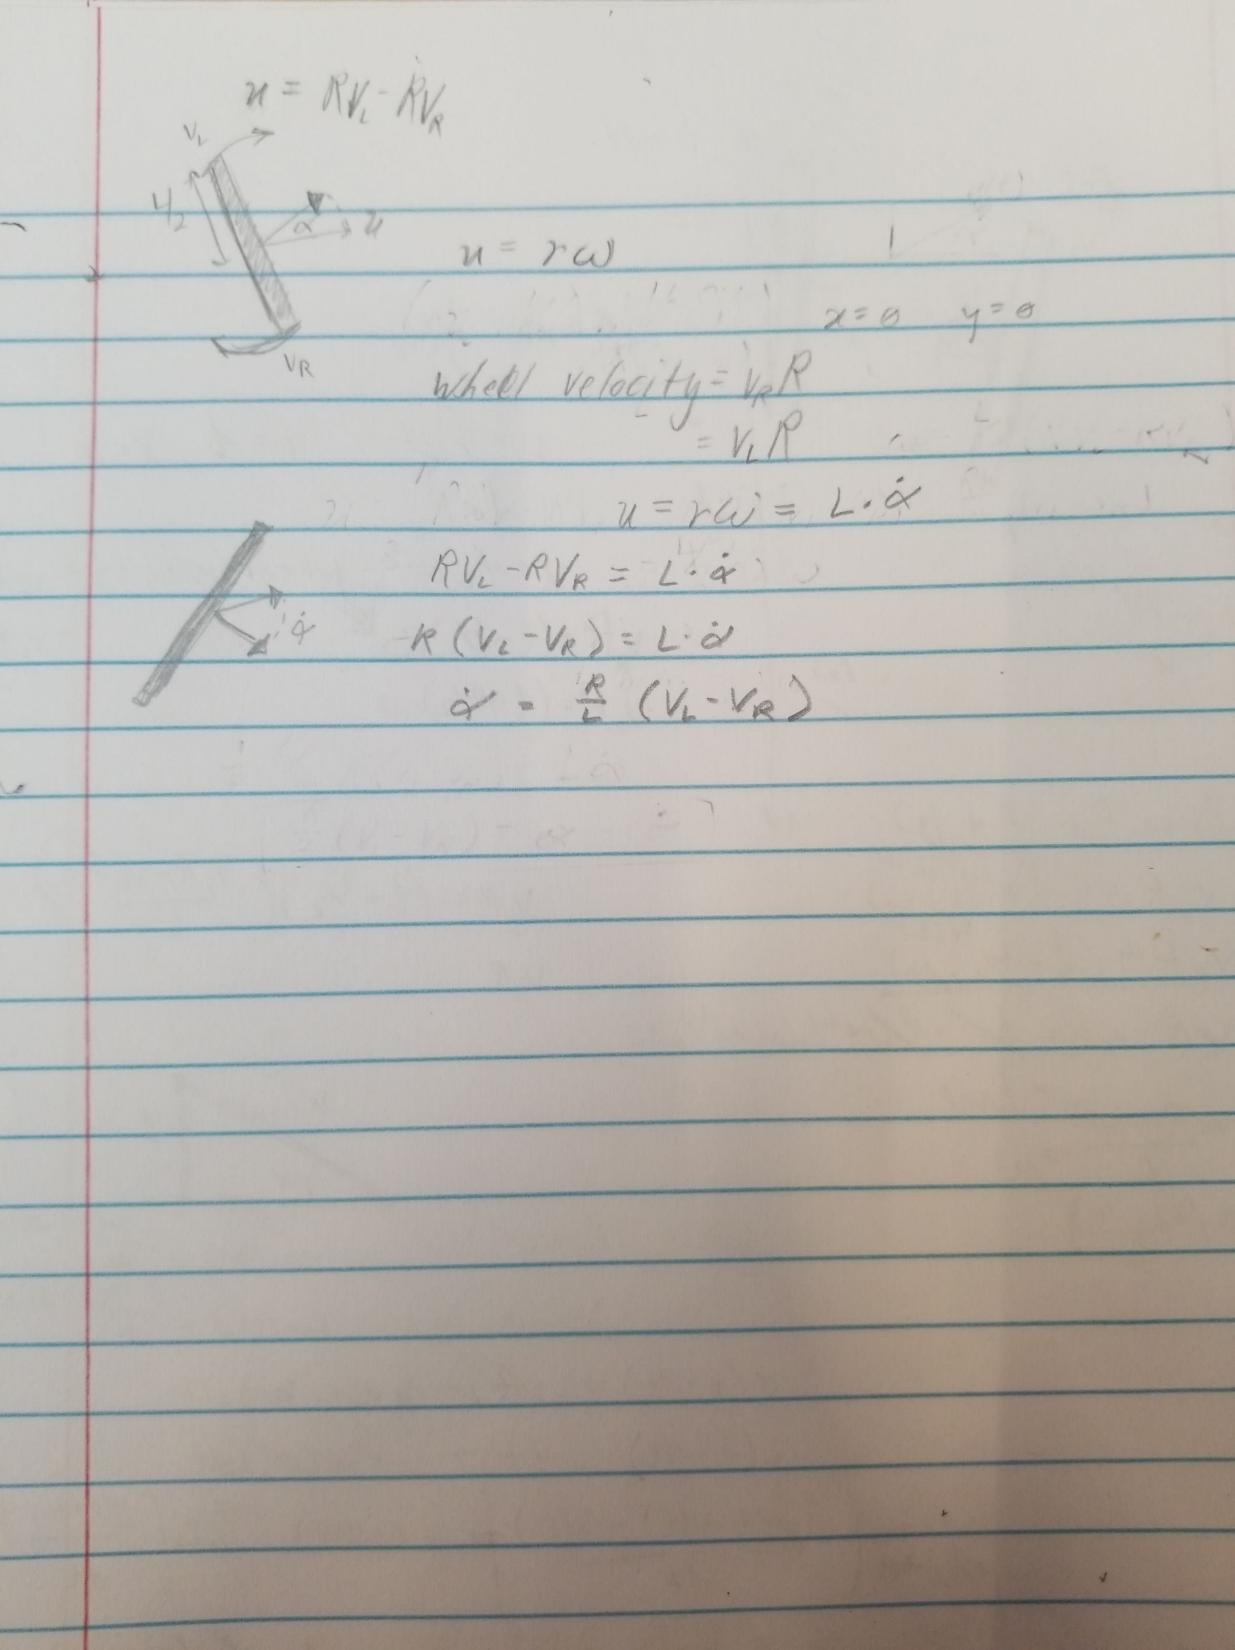 u = RV_L - RV_R
V_L
L/2
α
u
V_R
u = rω
x=0 y=0
wheel velocity = V_R R
= V_L R
u = rω = L·α̇
RV_L - RV_R = L·α̇
R(V_L - V_R) = L·α̇
α̇
α̇ = R/L (V_L - V_R)